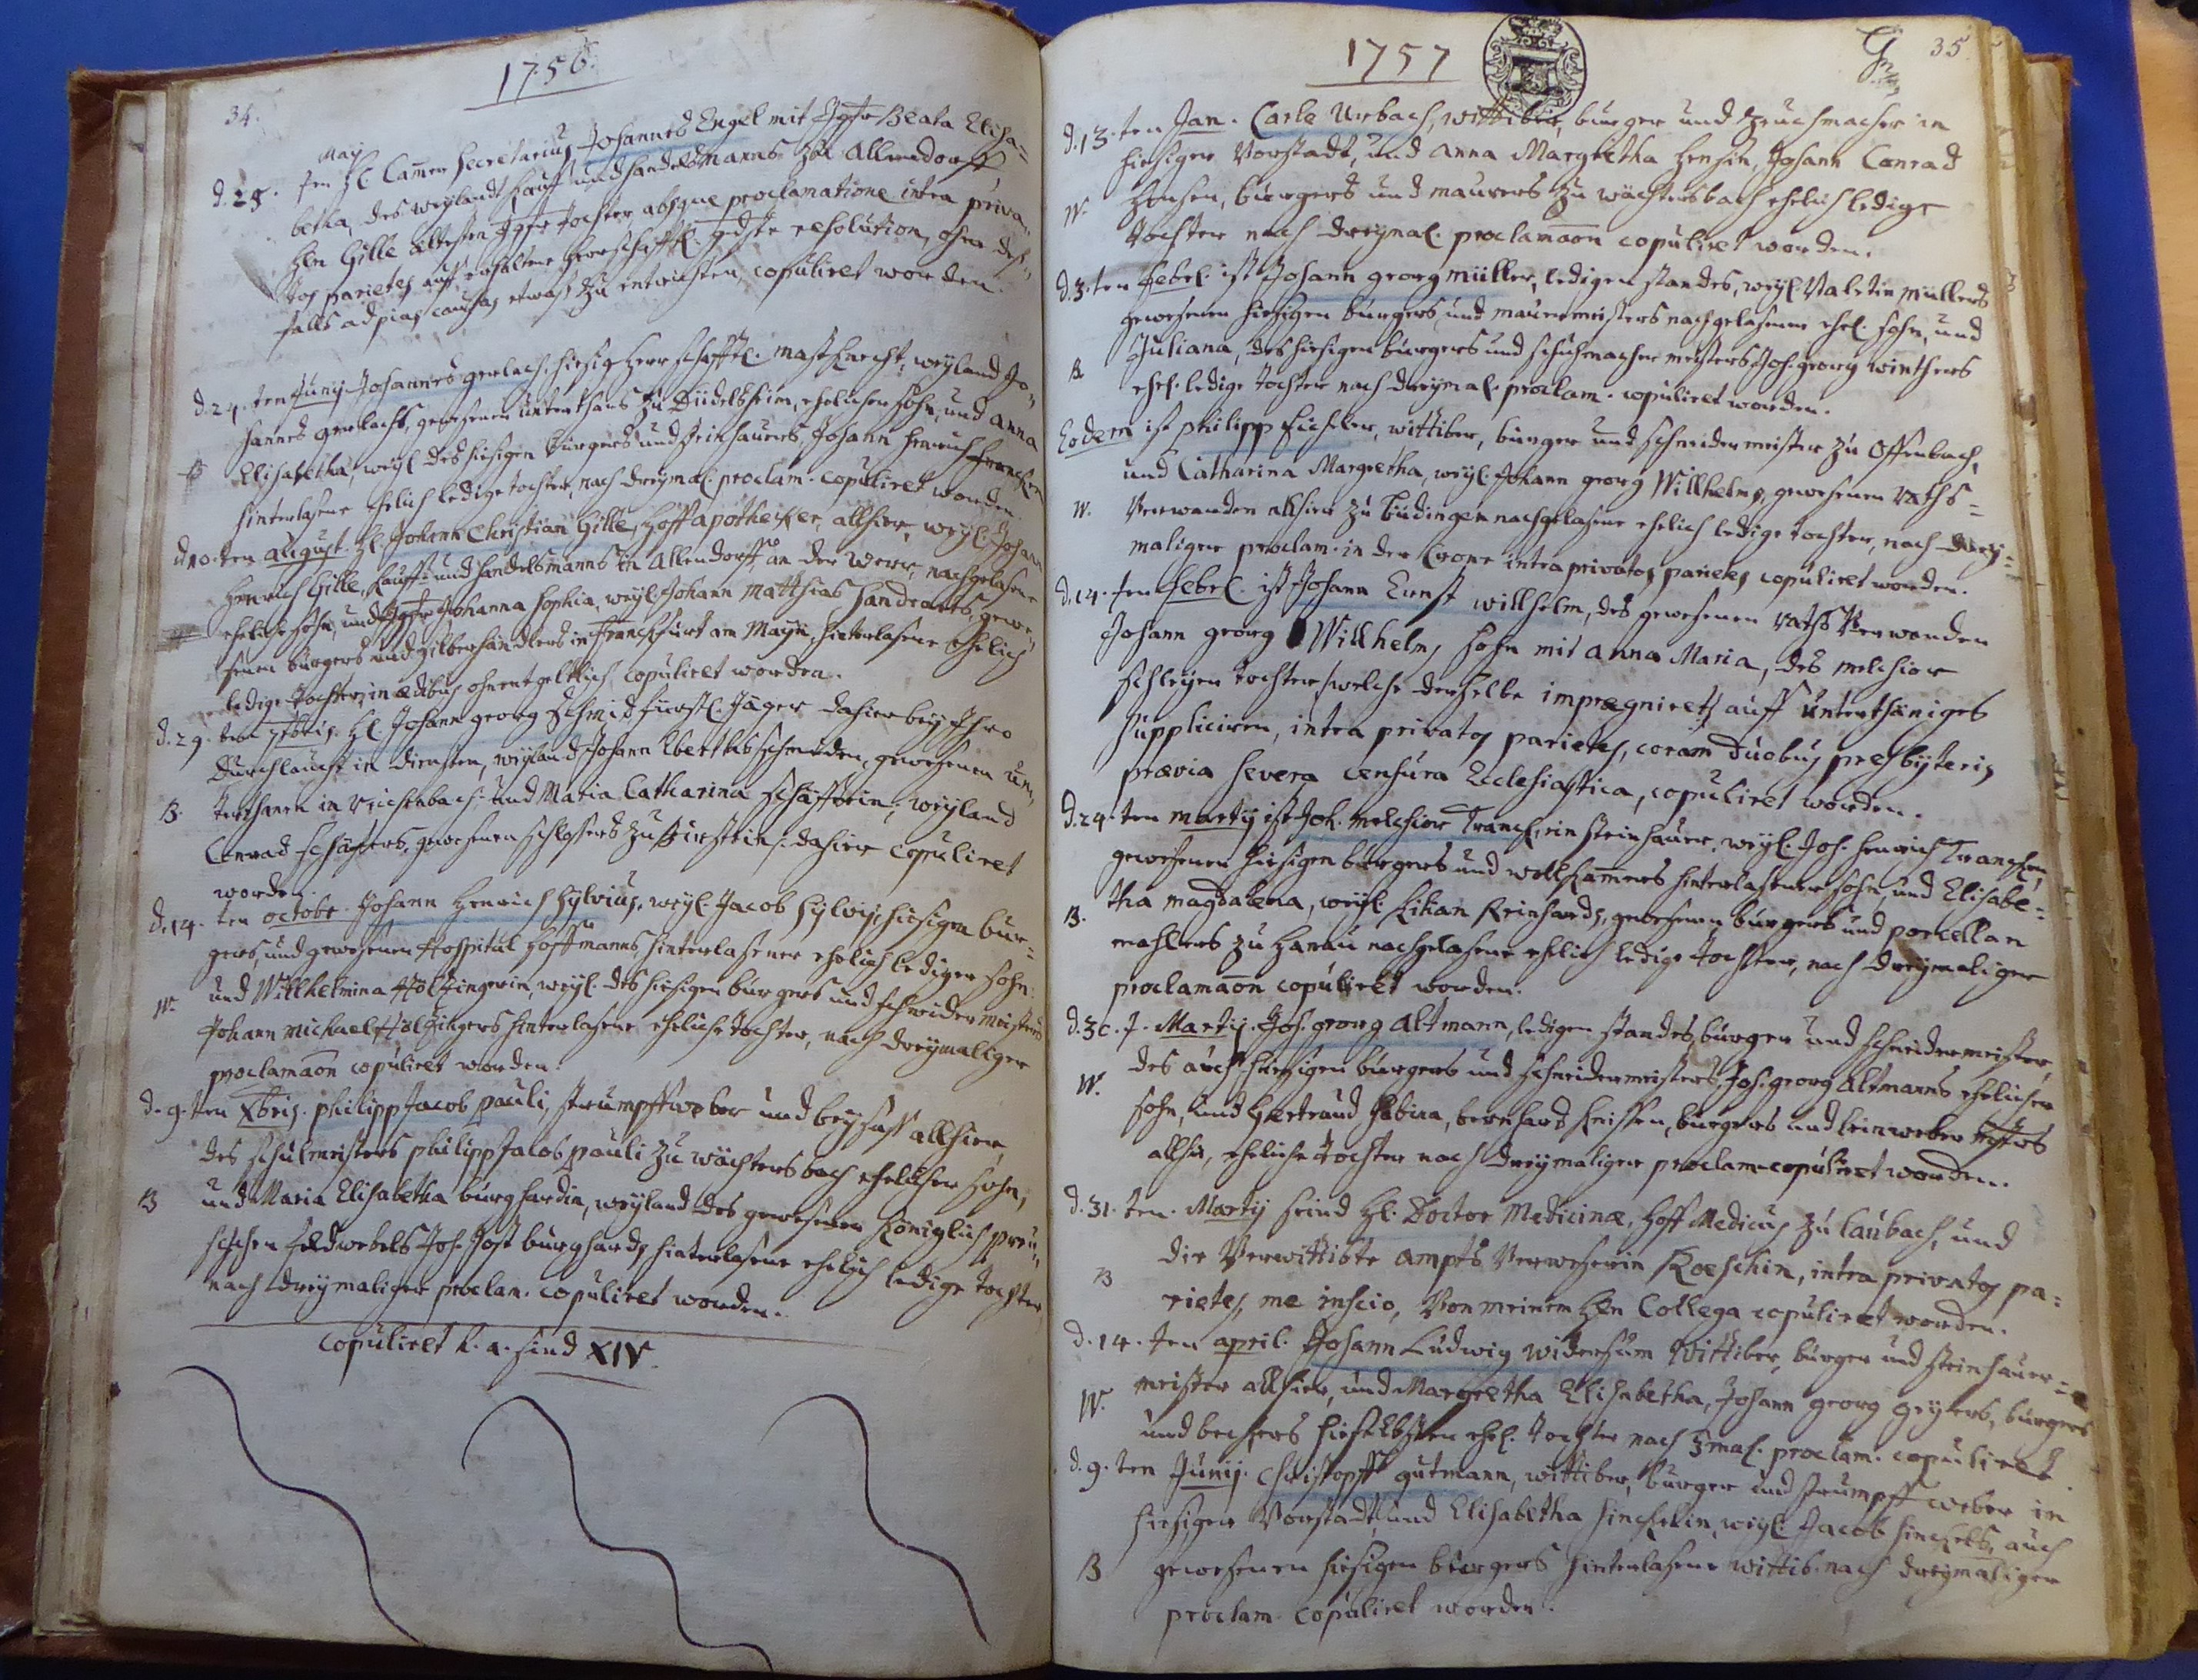 34.
1756.
May
d. 25. ten H. Cammer Secretarius Johannes Engel mit Jgfr Beata Elisa-
betha, des weylandt Kauff und Handelsmanns zu Allendorff
Hln Gille ältesten Jgfr Tochter absque proclamatione intra priva-
tos parietes auff erhaltene Herrschafftl. gdste resolution, ohne deß-
falls ad pias causas etwaß zu entrichten, copuliret worden.
d. 24. ten Junij Johannes Gerlach, hiesig Herrschafftl. Mastknecht, weyland Jo-
hannes Gerlachs, gewesenen Unterthans zu Düdelsheim, ehelicher Sohn, und Anna
B Elisabetha, weyl. des hiesigen Burgers und Steinhauers, Johann Henrich Francken
hinterlasene ehelich ledige Tochter, nach dreymal. proclam. copuliret worden.
d. 10. ten August. H. Johann Christian Gille, Hoffapothecker allhier, weyl. Johann
Henrich Gille, Kauff- und Handelsmanns in Allendorff an der Werr, nachgelasene
ehelicher Sohn, und Jgfr Johanna Sophia, weyl. Johann Matthias Handraets, gewe-
senen Burgers und Silberhändlers in Franckfurt am Mayn, hinterlasene ehelich
ledige Tochter, in aedibus ohnentgeltlich copuliret worden.
d. 29. ten 7bris. H. Johann Georg Schmid fürstl. Jäger dahier bey Ihro
Durchlaucht in Diensten, weyland Johann Eberths Schmiden, gewesenen Un-
B. terthanen in Reichenbach und Maria Catharina Schäfferin, weyland
Conrad Schäfers, gewesenen Schlossers zu Birstein dahier copuliret
worden.
d. 14. ten octobr. Johann Henrich Sylvius, weyl. Jacob Sylvij, hiesigen Bur-
gers, und gewesenen Hospital Hoffmanns, hinterlasener ehelich lediger Sohn
W. und Willhelmina Hölzingerin, weyl. des hiesigen Burgers und Schneidermeisters
Johann Michael Hölzingers hinterlasene eheliche Tochter, nach dreymaliger
proclamaon copuliret worden.
d. 9. ten Xbris. Philipp Jacob Pauli, Strumpffweber und Beysass allhier,
des Schulmeisters Philipp Jacob Pauli zu Wächtersbach ehelicher Sohn,
B und Maria Elisabetha Burghardin, weyland des gewesenen Königlich Preu-
sischen Feldwebels Joh. Jost Burghards hinterlasene ehelich ledige Tochter
nach dreymaliger proclam. copuliret worden.
copuliret h. a. sind XIV.
1757
35.
d. 13. ten Jan. Carle Urbach, wittiber, burger und Zeuchmacher in
hiesiger Vorstadt, und Anna Margretha Hensin, Johann Conrad
W. Hensen, burgers und maurers zu Wächtersbach ehelich ledige
Tochter nach dreymal. proclamaon copuliret worden.
d. 3. ten Febr. ist Johann Georg Müller, ledigen standes, weyl. Valetin Müllers
gewesenen hiesigen burgers und maurermeisters nachgelasener ehel. sohn, und
B Juliana, des hiesigen burgers und schuhmacher meisters Joh. Georg Winthers
ehel. ledige Tochter nach dreymal. proclam. copuliret worden.
Eodem ist Philipp Fichler, wittiber, burger und schneidermeister zu Offenbach,
und Catharina Margretha, weyl. Johann Georg Willhelms, gewesenen Raths-
W. Verwanden allhier zu Büdingen nachgelasene ehelich ledige Tochter, nach drey-
maliger proclam. in der Crone intra privatos parietes copuliret worden.
d. 14. ten Febr. ist Johann Ernst Willhelm, des gewesenen Raths Verwanden
Johann Georg Willhelms sohn mit Anna Maria, des Melchior
Schleyen Tochter, welche derselbe impraegniret, auff unterthäniges
suppliciren, intra privatos parietes, coram duobus presbyteris
praevia severa censura Ecclesiastica, copuliret worden.
d. 24. ten Martij ist Joh. Melchior Franck, ein steinhauer, weyl. Joh. Henrich Francken,
gewesenen hiesigen burgers und wollkämmers hinterlasener sohn, und Elisabe-
B. tha Magdalena, weyl. Kilian Reinhards, gewesenen burgers und porcellan
mahlers zu Hanau nachgelasene ehelich ledige Tochter, nach dreymaliger
proclamaon copuliret worden.
d. 30. t. Martij. Joh. Georg Altmann, ledigen standes, burger und schneidermeister,
des auch hiesigen burgers und schneidermeisters, Joh. Georg Altmanns ehelicher
W. sohn, und Gertraud Sabina, Bernhard burgers und leinweber
allhier, eheliche Tochter nach dreymaliger proclam. copuliret worden.
d. 31. ten. Martij seind H. Doctor Medicinae, Hoff Medicus zu Laubach, und
die Verwittibte Ampts Verweserin Koeschin, intra privatos pa-
B rietes, me inscio, Von meinem Hln Collega copuliret worden.
d. 14. ten April. Johann Ludwig Widersum Wittiber, burger und steinhauer-
W. meister allhier, und Margretha Elisabetha, Johann Georg Geyers, burgers
und beckers hieselbsten ehel. Tochter nach 3mal. proclam. copuliret
d. 9. ten Junij. Christoff Gutmann, wittiber, burger und strumpff weber in
hiesiger Vorstadt, und Elisabetha Hinckelin, weyl. Jacob Hinckels, auch
B gewesenen hiesigen burgers hinterlasene wittib. nach dreymaliger
proclam. copuliret worden.